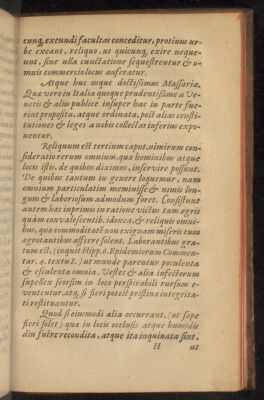 cunq́, exeundi facultas conceditur, protinus ur-
be exeant, reliquo, ut quicunq́, exire neque-
unt, sine ulla cunctatione sequestrentur & o-
mnis commercio locus auferatur.
Atque huc usque doctissimus Massaria.
Quæ vero in Italia quoque prudentissime a Ve-
netis & aliis publice insuper hac in parte fue-
rint proposita, atque ordinata, post alias consti-
tutiones & leges a nobis collectas inferius expo-
nentur.
Reliquum est tertium caput, nimirum con-
sideratio rerum omnium, quæ hominibus atque
locis istis, de quibus diximus, inservire possunt.
De quibus tantum in genere loquemur, nam
omnium particulatim meminisse & nimis lon-
gum & laboriosum admodum foret. Consistunt
autem hæc inprimis in ratione victus tam ægris
quàm convalescentib. idonea, & reliquis omni-
bus, quæ commoditatē non exiguam miseris tum
ægrotantibus afferre solent. Laborantibus græ-
tum est, (inquit Hipp. 6. Epidemiorum Commen-
tar. 4. textu 8.) ut munde parentur poculenta
& esculenta omnia. Vestes & alia infectorum
supellex seorsim in loco perspirabili rursum e-
ventcntur. atq́, si fieri potest pristinæ integrita-
ti restituantur.
Quod si eiusmodi alia occurrant, (ut sæpe
fieri solet) quæ in locis occlusis atque humidis
diu fuêre recondita, atque ita inquinata sint,
H ut